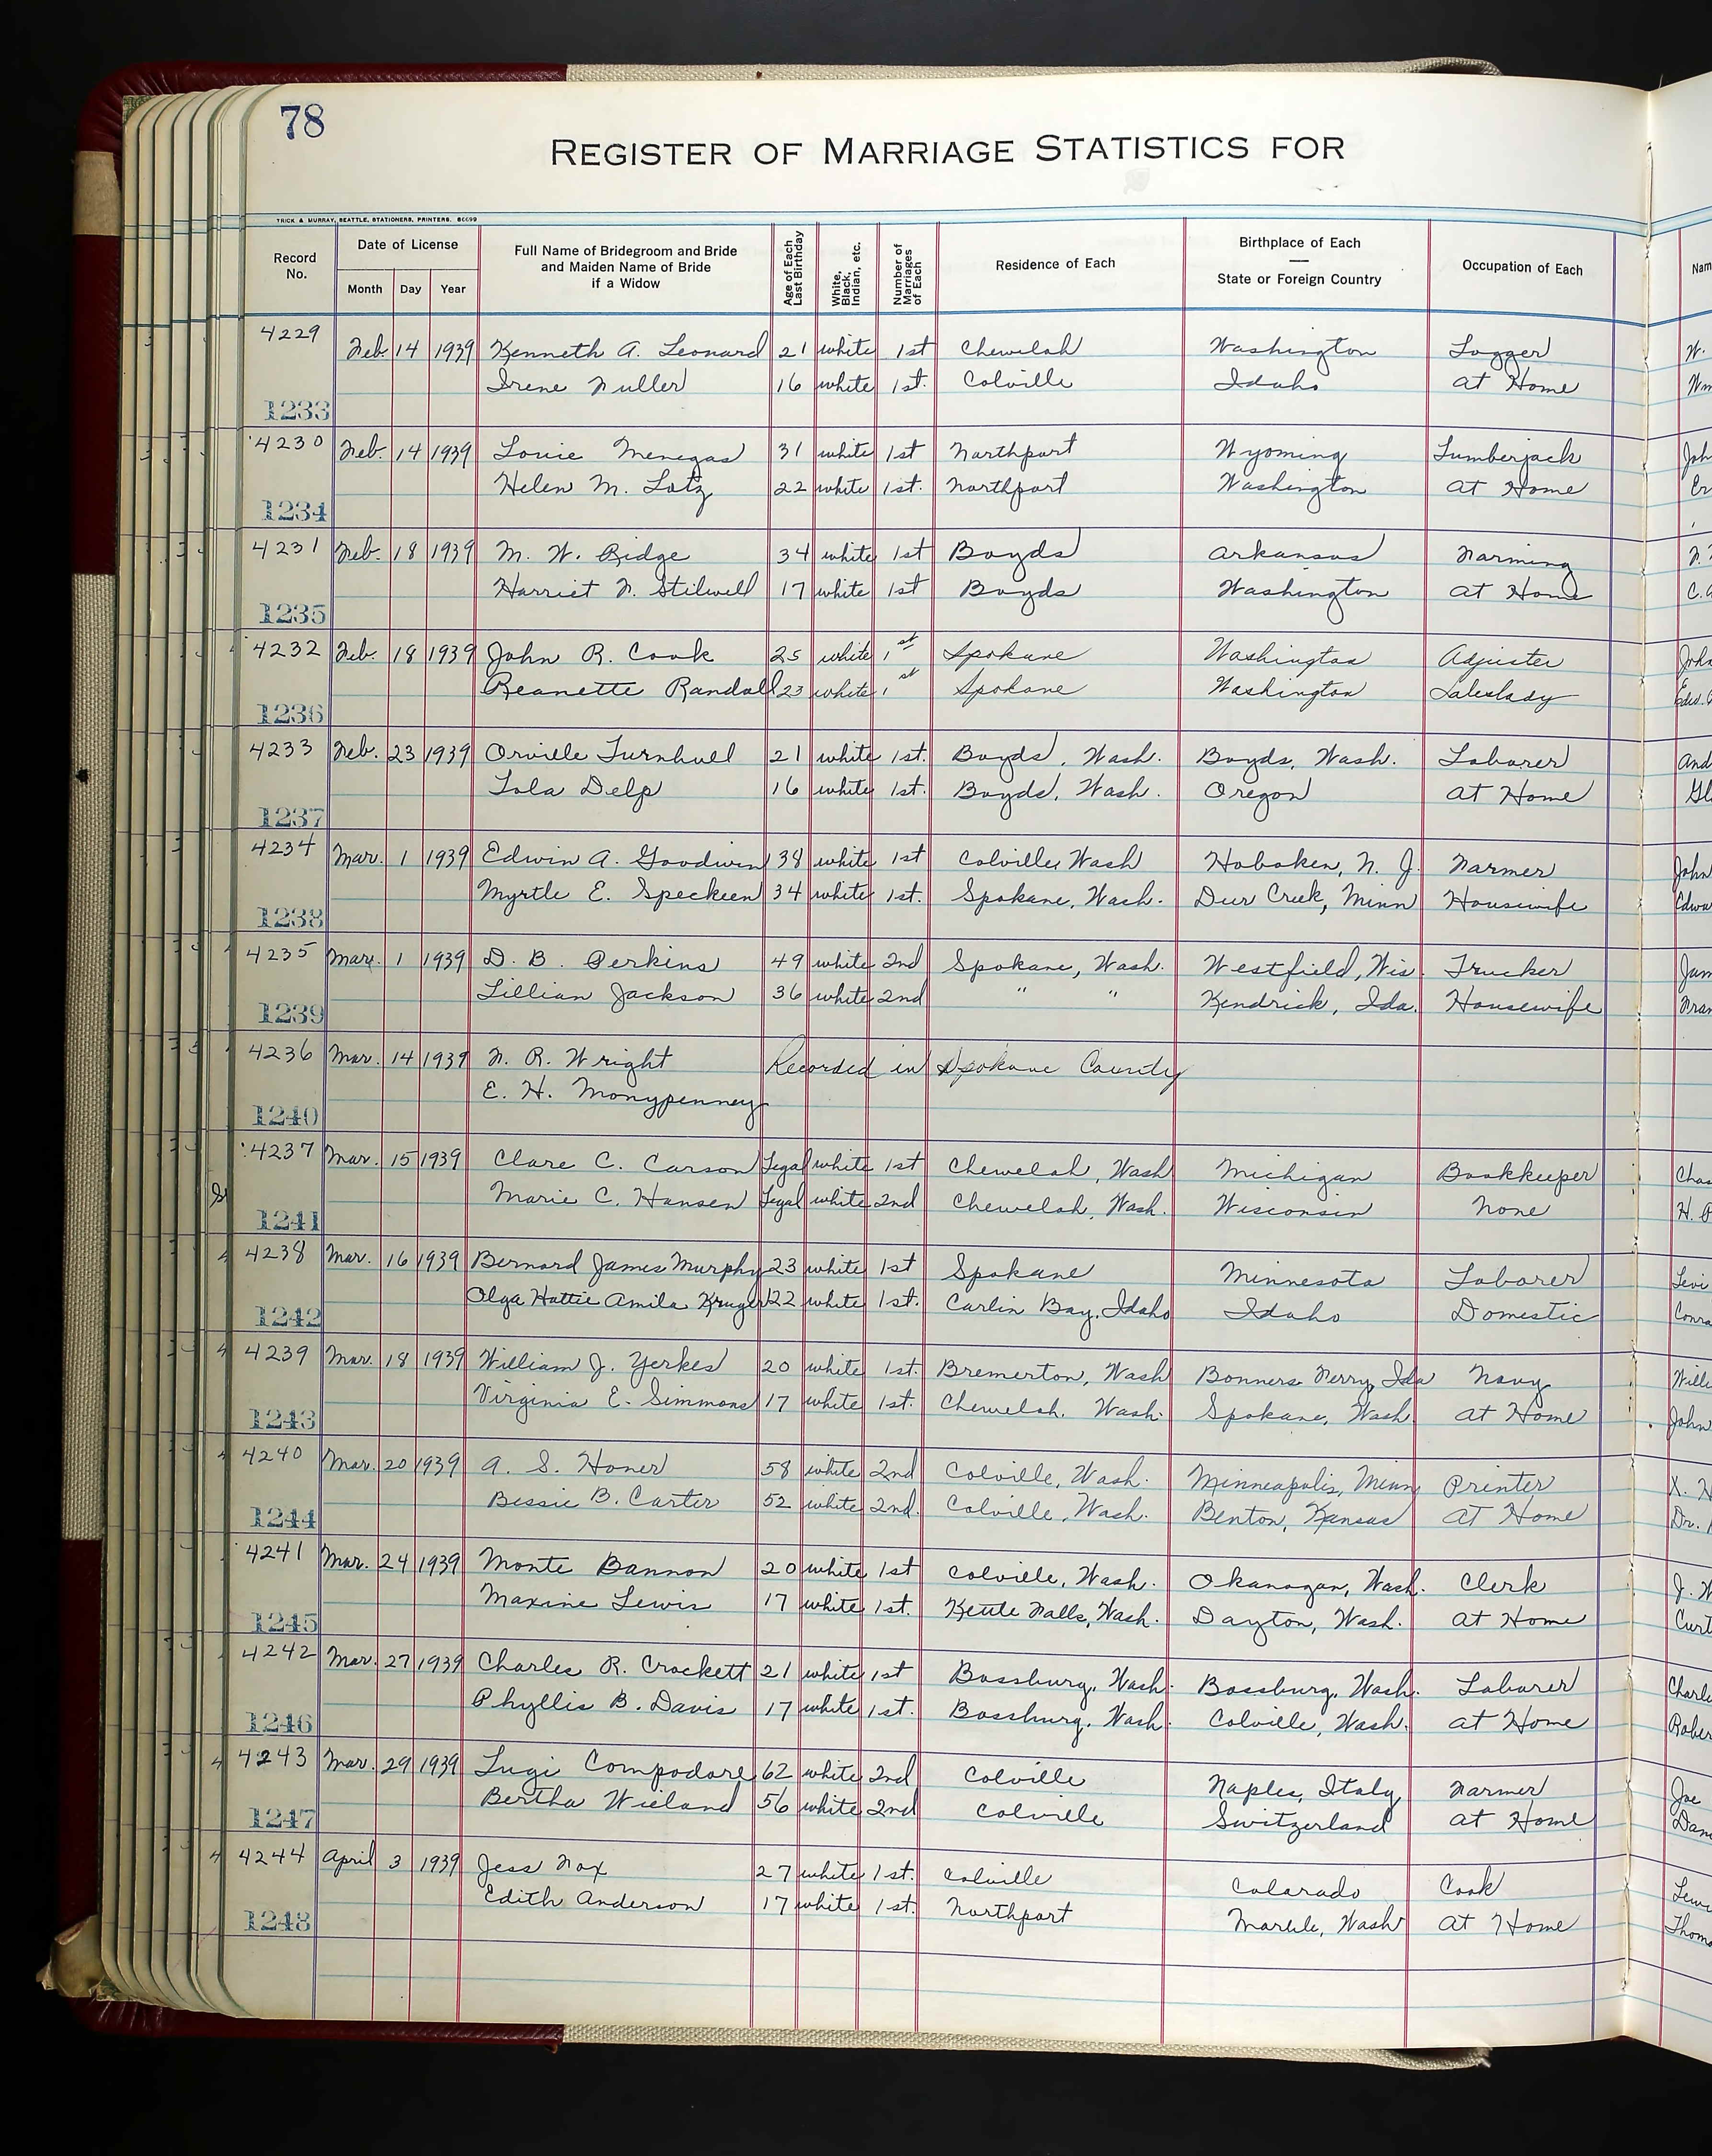 78
REGISTER OF MARRIAGE STATISTICS FOR
TRICK & MURRAY, SEATTLE, STATIONERS, PRINTERS.
Record No. Date of License Month Day Year Full Name of Bridegroom and Bride and Maiden Name of Bride if a Widow Age of Each Last Birthday White, Black, Indian, etc. Number of Marriages of Each Residence of Each Birthplace of Each State or Foreign Country Occupation of Each Nam
4229 Feb. 14 1939 Kenneth A. Leonard 21 white 1st Chewelah Washington Logger W.
Irene Fuller 16 white 1st. Colville Idaho At Home Wm
1233
4230 Feb. 14 1939 Louie Menegas 31 white 1st Northport Wyoming Lumberjack Joh
Helen M. Lotz 22 white 1st. Northport Washington At Home Er
1234
4231 Feb. 18 1939 M. W. Ridge 34 white 1st Boyds Arkansas Farming
Harriet F. Stilwell 17 white 1st Boyds Washington At Home C.
1235
4232 Feb. 18 1939 John R. Cook 25 white 1st Spokane Washington Adjuster John
Reanette Randall 23 white 1st Spokane Washington Saleslady Edw.
1236
4233 Feb. 23 1939 Orville Turnbull 21 white 1st. Boyds, Wash. Boyds, Wash. Laborer And
Lola Delp 16 white 1st. Boyds, Wash. Oregon At Home Gl
1237
4234 Mar. 1 1939 Edwin A. Goodwin 38 white 1st Colville, Wash Hoboken, N. J. Farmer John
Myrtle E. Speckeen 34 white 1st. Spokane, Wash. Deer Creek, Minn Housewife Edwa
1238
4235 Mar. 1 1939 D. B. Perkins 49 white 2nd Spokane, Wash. Westfield, Wis. Trucker Jam
Lillian Jackson 36 white 2nd " " Kendrick, Ida. Housewife Fran
1239
4236 Mar. 14 1939 F. R. Wright Recorded in Spokane County
E. H. Monypenney
1240
4237 Mar. 15 1939 Clare C. Carson Legal white 1st Chewelah, Wash Michigan Bookkeeper Chas
Marie C. Hansen Legal white 2nd Chewelah, Wash. Wisconsin None H.
1241
4238 Mar. 16 1939 Bernard James Murphy 23 white 1st Spokane Minnesota Laborer Levi
Olga Hattie Amila Kruger 22 white 1st. Carlin Bay, Idaho Idaho Domestic Conra
1242
4239 Mar. 18 1939 William J. Yerkes 20 white 1st. Bremerton, Wash Bonners Ferry, Ida Navy Wille
Virginia E. Simmons 17 white 1st. Chewelah, Wash. Spokane, Wash. At Home John
1243
4240 Mar. 20 1939 A. S. Honer 58 white 2nd Colville, Wash. Minneapolis, Minn Printer
Bessie B. Carter 52 white 2nd. Colville, Wash. Benton, Kansas At Home Dr.
1244
4241 Mar. 24 1939 Monte Bannon 20 white 1st Colville, Wash. Okanogan, Wash. Clerk J. W
Maxine Lewis 17 white 1st. Kettle Falls, Wash. Dayton, Wash. At Home Curt
1245
4242 Mar. 27 1939 Charles R. Crockett 21 white 1st Bossburg, Wash. Bossburg, Wash. Laborer Charle
Phyllis B. Davis 17 white 1st. Bossburg, Wash. Colville, Wash. At Home Rober
1246
4243 Mar. 29 1939 Lugi Compodore 62 white 2nd Colville Naples, Italy Farmer Joe
Bertha Wieland 56 white 2nd Colville Switzerland At Home Dan
1247
4244 April 3 1939 Jess Fox 27 white 1st. Colville Colorado Cook Lew
Edith Anderson 17 white 1st. Northport Marble, Wash At Home Thom
1248